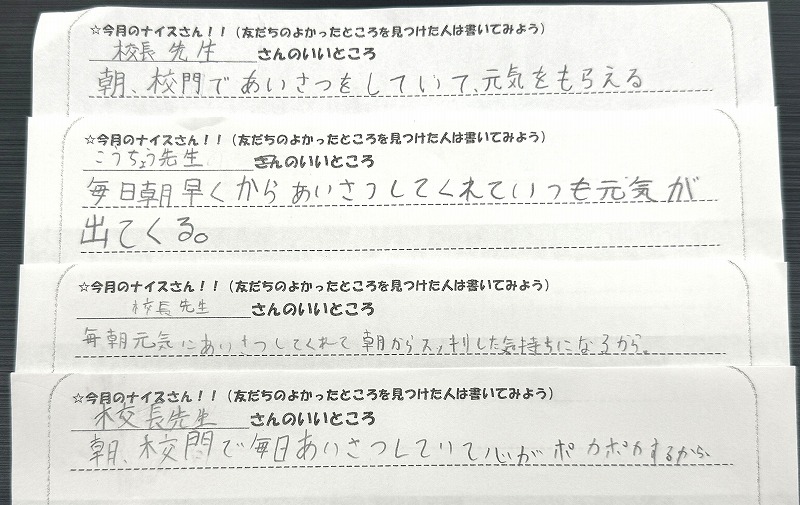 ☆今月のナイスさん！！（友だちのよかったところを見つけた人は書いてみよう）
校長先生さんのいいところ
朝、校門であいさつをしていて、元気をもらえる
☆今月のナイスさん！！（友だちのよかったところを見つけた人は書いてみよう）
こうちょう先生さんのいいところ
毎日朝早くからあいさつしてくれていつも元気が
出てくる。
☆今月のナイスさん！！（友だちのよかったところを見つけた人は書いてみよう）
校長先生さんのいいところ
毎朝元気にあいさつしてくれて朝からスッキリした気持ちになるから。
☆今月のナイスさん！！（友だちのよかったところを見つけた人は書いてみよう）
校長先生さんのいいところ
朝、校門で毎日あいさつしていて心がポカポカするから、